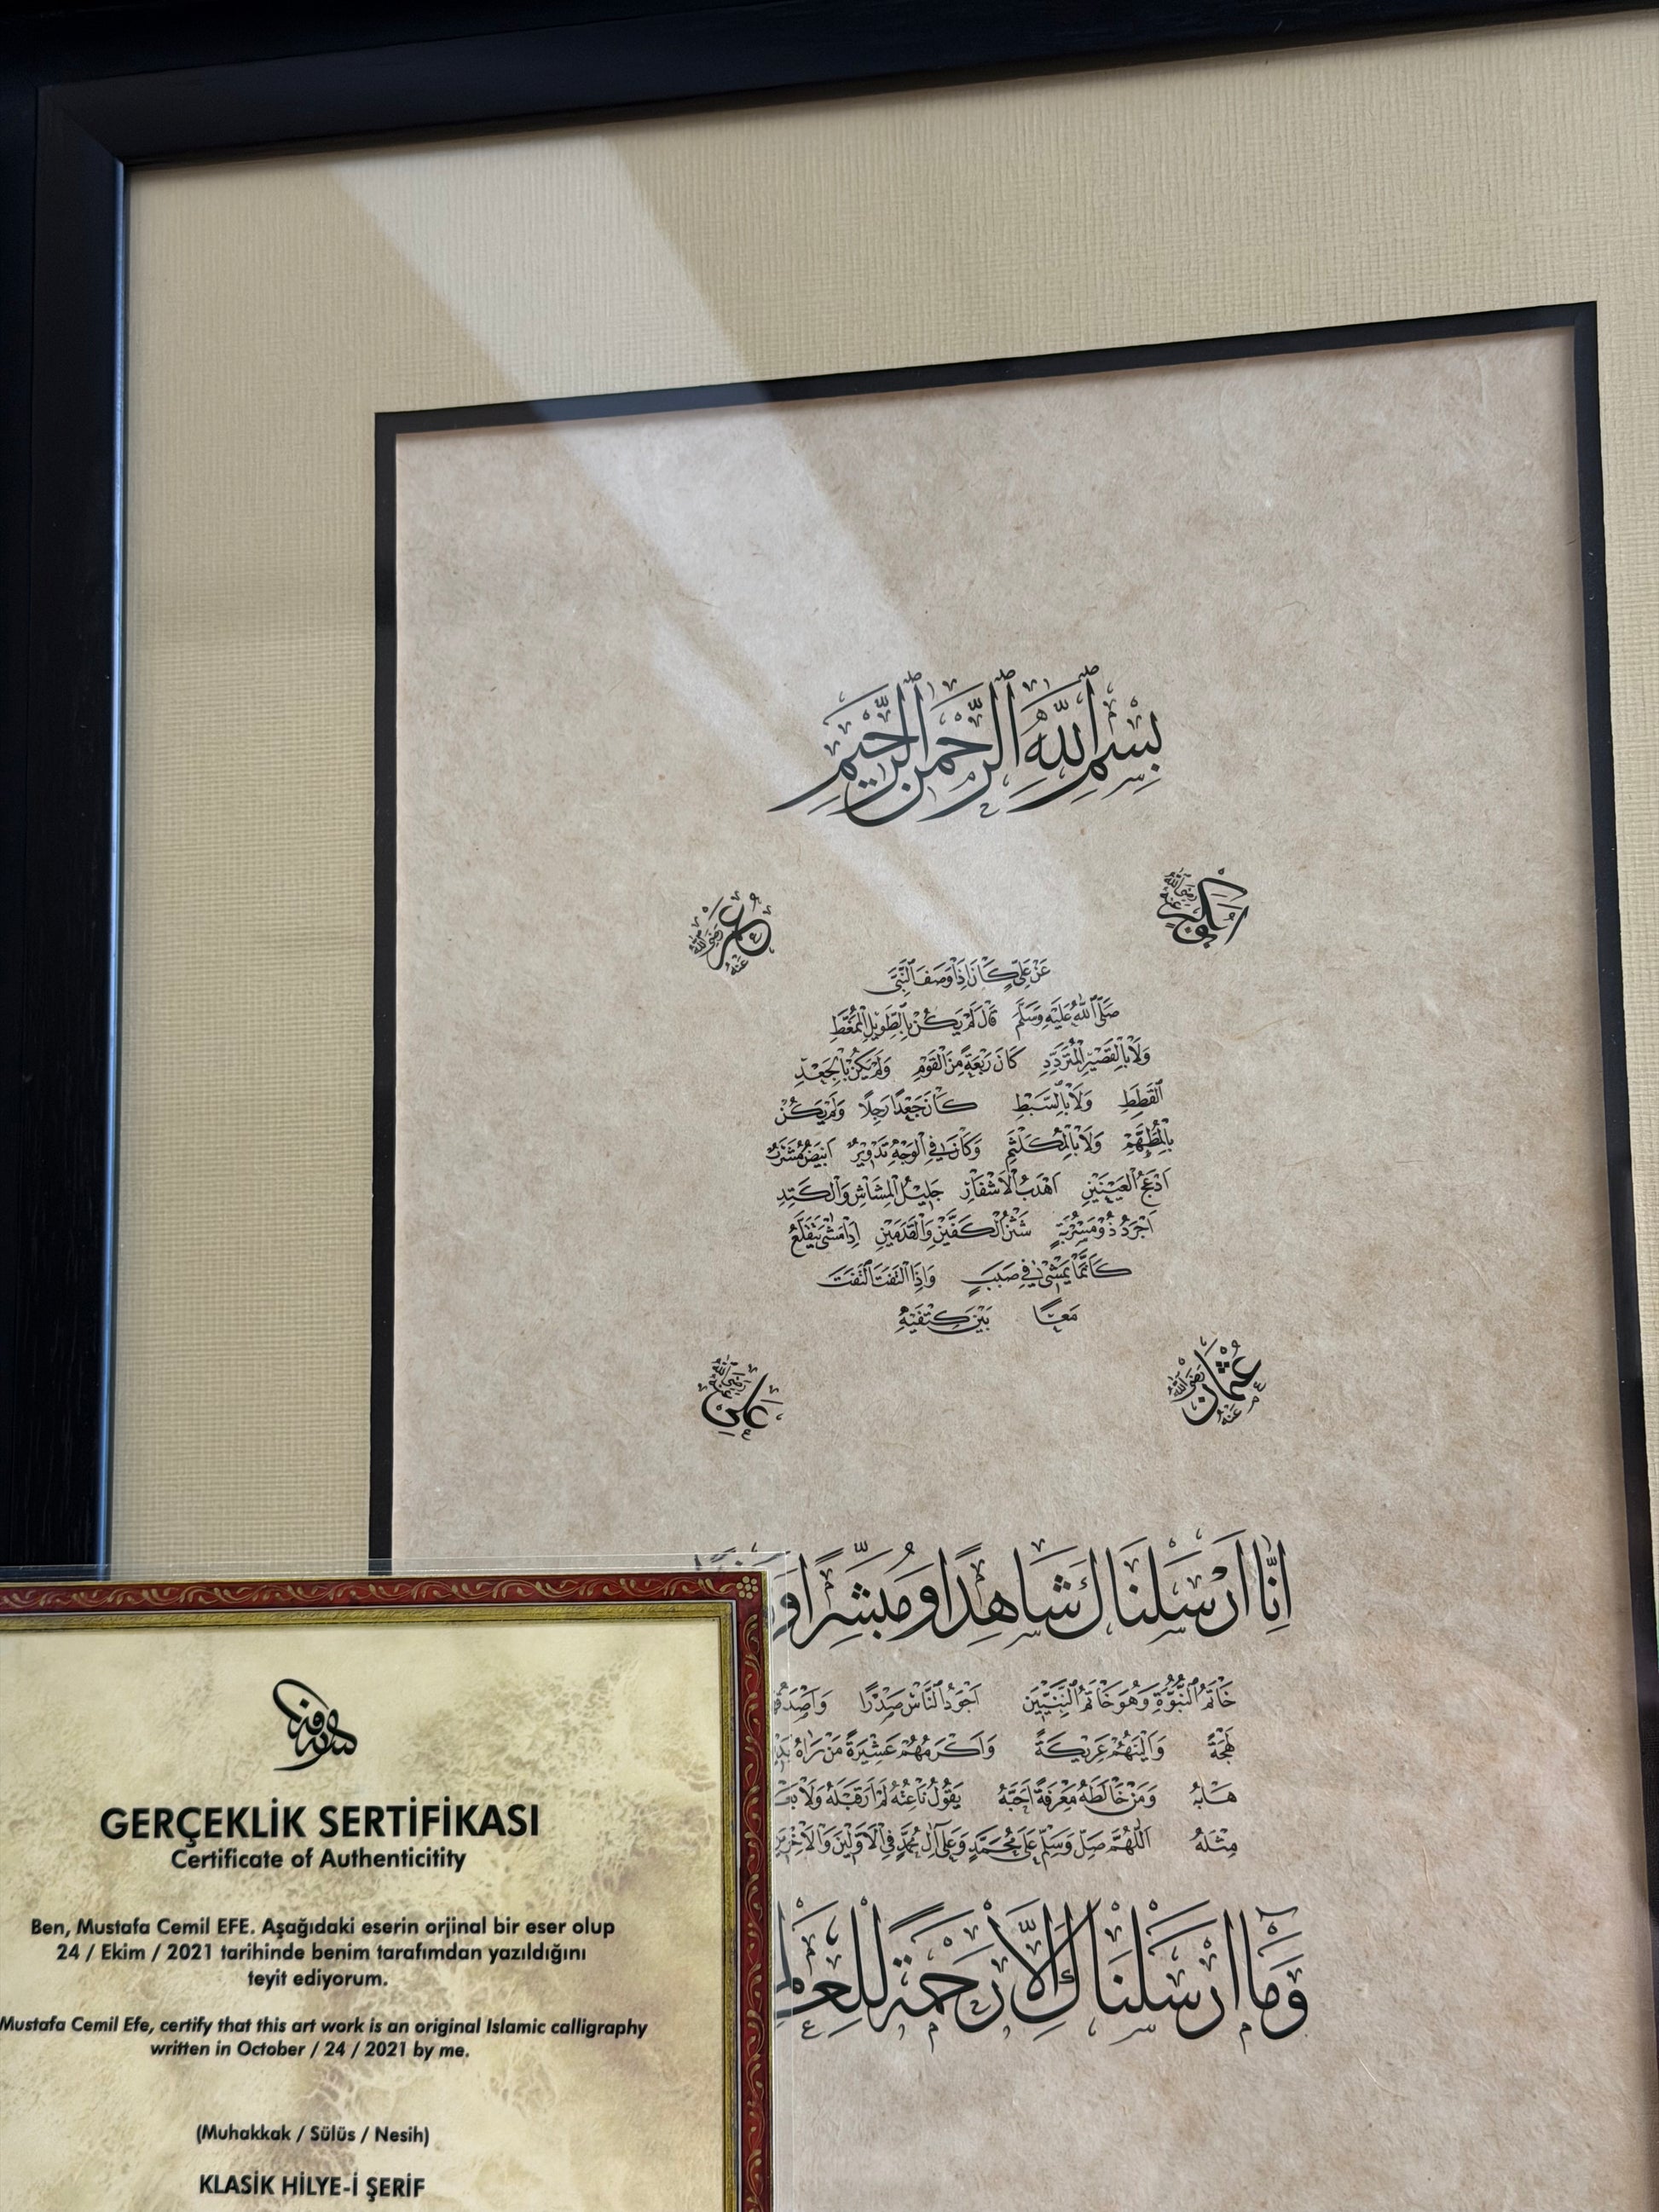 بِسْمِ اللّٰهِ الرَّحْمٰنِ الرَّحِيمِ
ابوبكر رضي الله عنه
عمر رضي الله عنه
عَنْ عَلِيٍّ كَانَ اِذَا وَصَفَ النَّبِيَّ
صَلَّى اللّٰهُ عَلَيْهِ وَسَلَّمَ قَالَ لَمْ يَكُنْ بِالطَّوِيلِ الْمُمَّغِطِ
وَلَا بِالْقَصِيرِ الْمُتَرَدِّدِ كَانَ رَبْعَةً مِنَ الْقَوْمِ وَلَمْ يَكُنْ بِالْجَعْدِ
الْقَطِطِ وَلَا بِالسَّبِطِ كَانَ جَعْدًا رَجِلًا وَلَمْ يَكُنْ
بِالْمُطَهَّمِ وَلَا بِالْمُكَلْثَمِ وَكَانَ فِي الْوَجْهِ تَدْوِيرٌ اَبْيَضُ مُشْرَبٌ
اَدْعَجُ الْعَيْنَيْنِ اَهْدَبُ الْاَشْفَارِ جَلِيلُ الْمُشَاشِ وَالْكَتَدِ
اَجْرَدُ ذُو مَسْرُبَةٍ شَثْنُ الْكَفَّيْنِ وَالْقَدَمَيْنِ اِذَا مَشٰى يَتَقَلَّعُ
كَاَنَّمَا يَمْشٖي فِي صَبَبٍ وَاِذَا الْتَفَتَ الْتَفَتَ
مَعًا بَيْنَ كَتِفَيْهِ
عثمان رضي الله عنه
علي رضي الله عنه
اِنَّا اَرْسَلْنَاكَ شَاهِدًا وَمُبَشِّرًا
خَاتَمُ النُّبُوَّةِ وَهُوَ خَاتَمُ النَّبِيّٖينَ اَجْوَدُ النَّاسِ صَدْرًا
لَهْجَةً وَاَلْيَنُهُمْ عَرِيكَةً وَاَكْرَمُهُمْ عَشِيرَةً مَنْ رَاٰهُ
هَابَهُ وَمَنْ خَالَطَهُ مَعْرِفَةً اَحَبَّهُ يَقُولُ نَاعِتُهُ لَمْ اَرَ قَبْلَهُ وَلَا
مِثْلَهُ اَللّٰهُمَّ صَلِّ وَسَلِّمْ عَلٰى مُحَمَّدٍ وَعَلٰى اٰلِ مُحَمَّدٍ فِي الْاَوَّلِينَ وَالْاٰخِرِينَ
وَمَا اَرْسَلْنَاكَ اِلَّا رَحْمَةً
GERÇEKLİK SERTİFİKASI
Certificate of Authenticitity
Ben, Mustafa Cemil EFE. Aşağıdaki eserin orjinal bir eser olup
24 / Ekim / 2021 tarihinde benim tarafımdan yazıldığını
teyit ediyorum.
Mustafa Cemil Efe, certify that this art work is an original Islamic calligraphy
written in October / 24 / 2021 by me.
(Muhakkak / Sülüs / Nesih)
KLASİK HİLYE-İ ŞERİF